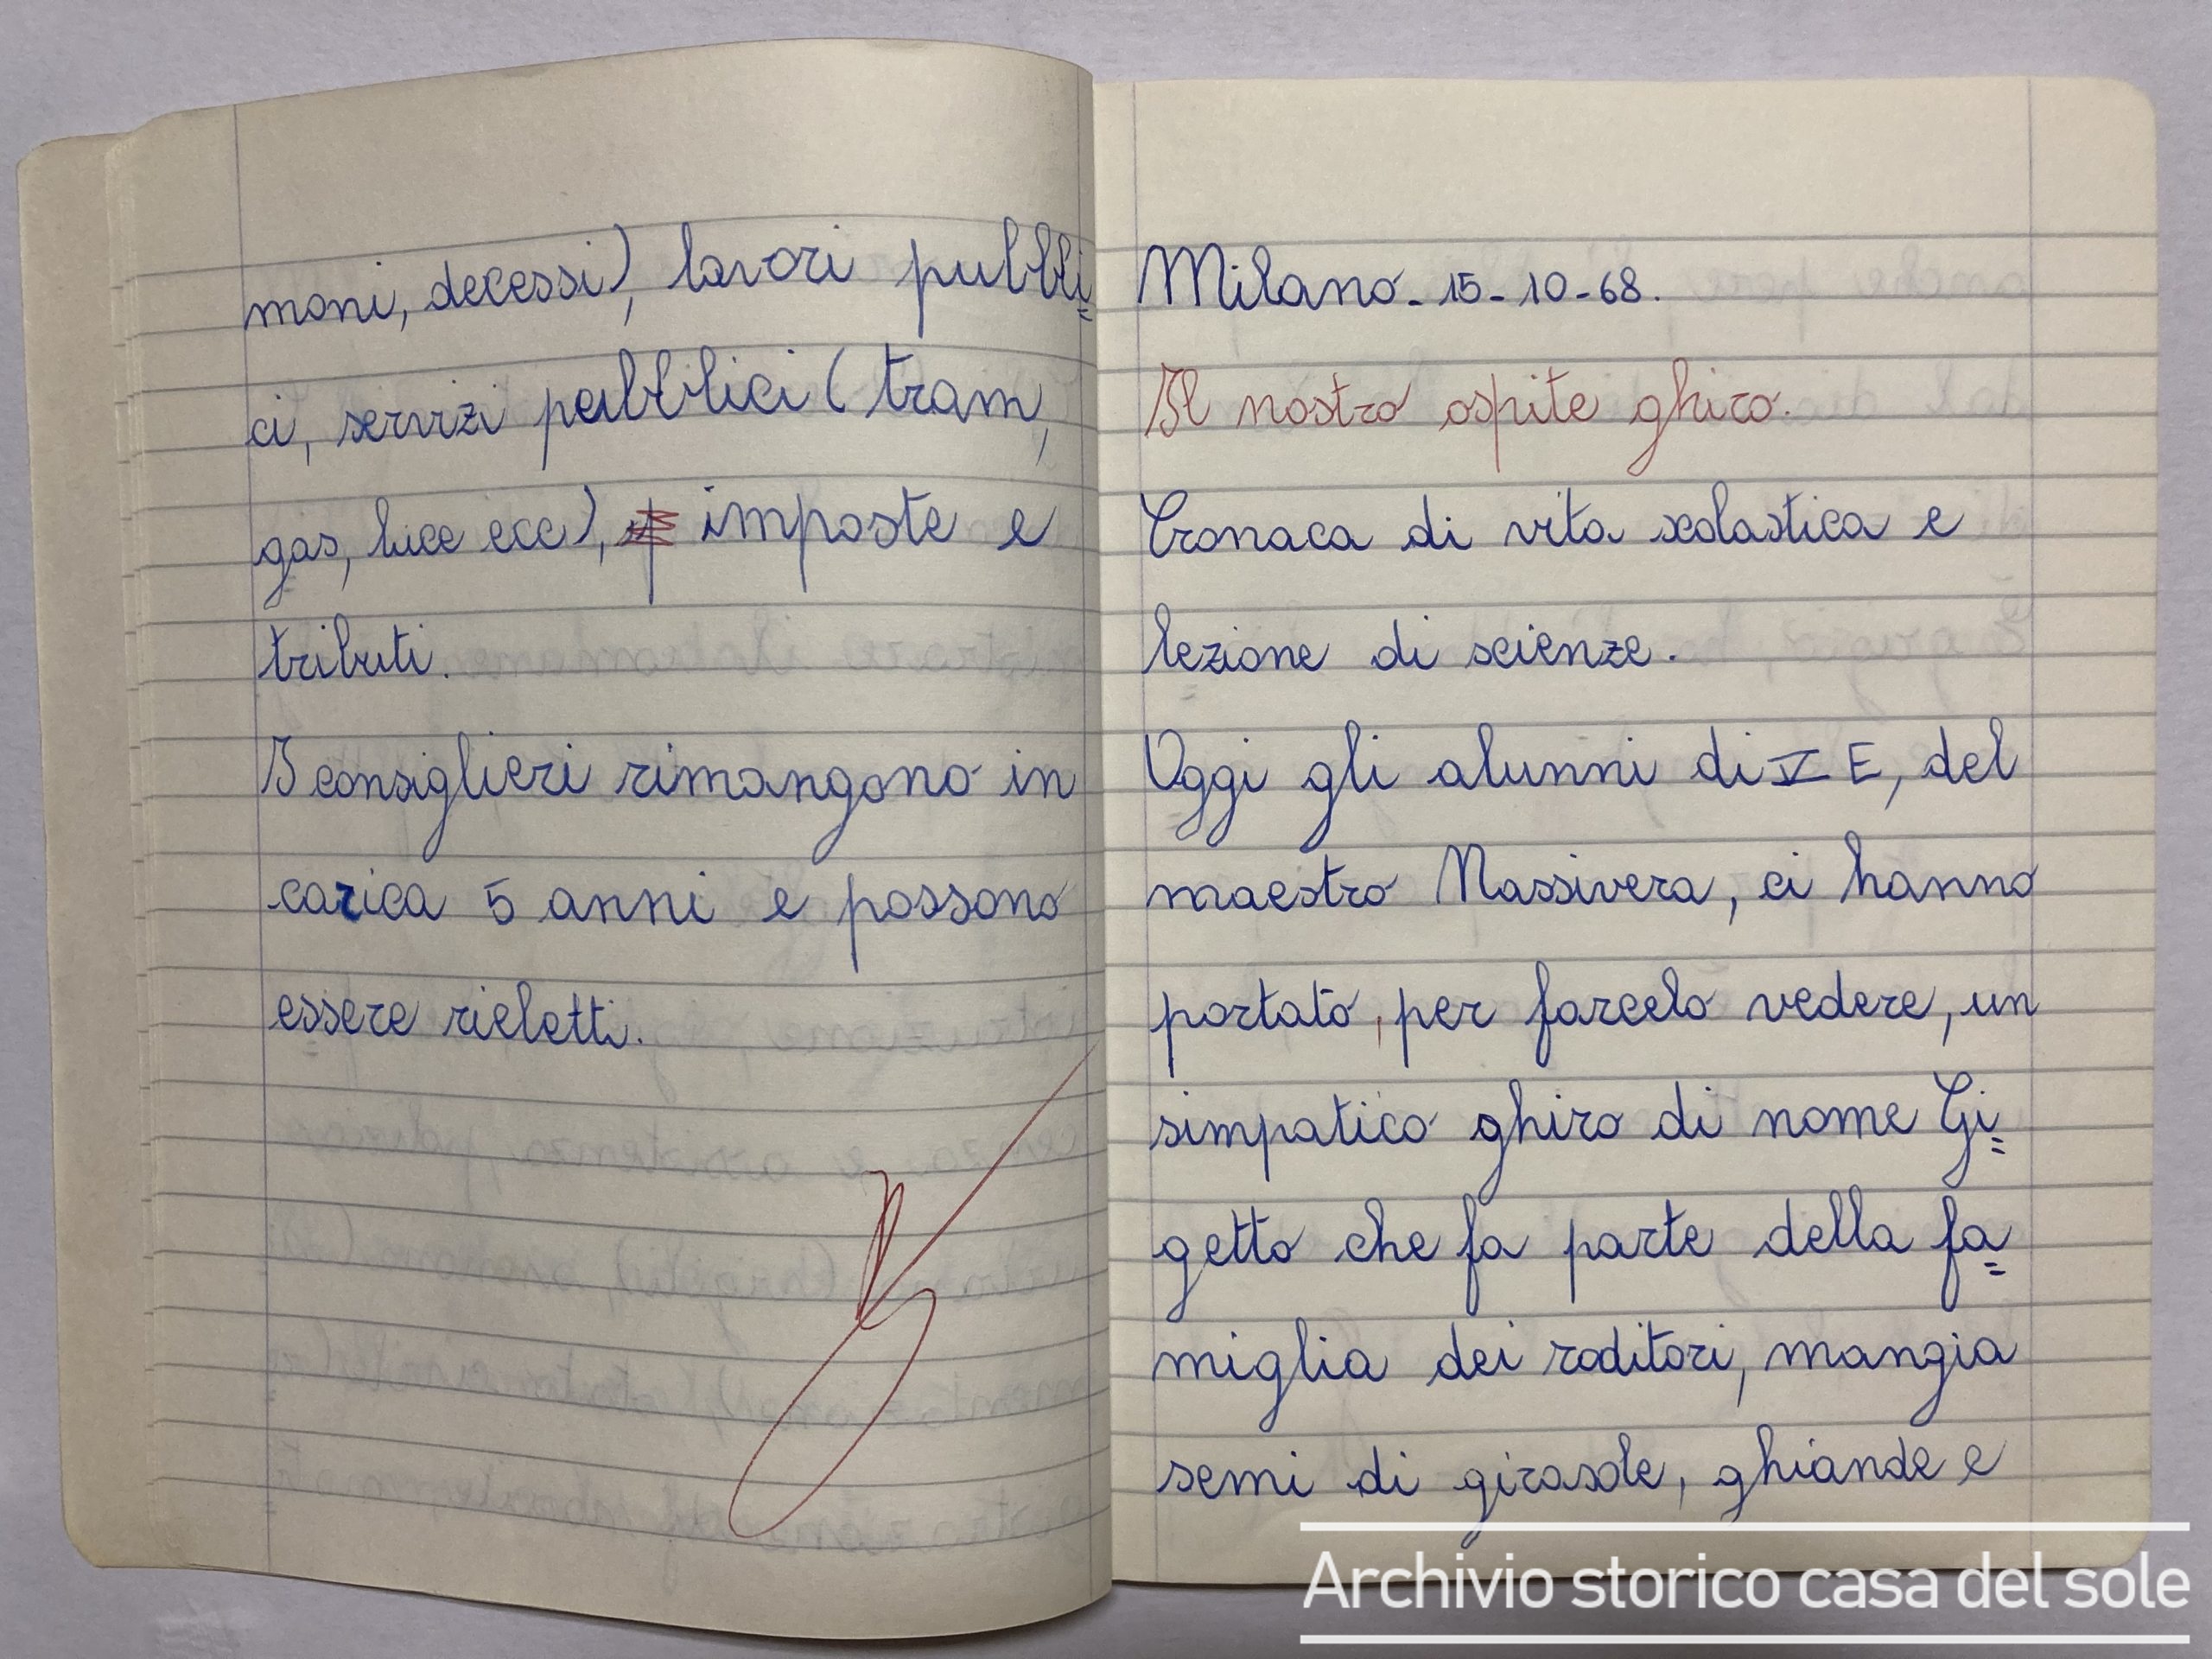 moni, decessi), lavori pubbli=
ci, servizi pubblici (tram,
gas, luce ecc), imposte e
tributi.
I consiglieri rimangono in
carica 5 anni e possono
essere rieletti.
Milano - 15 - 10 - 68.
Il nostro ospite ghiro.
Cronaca di vita scolastica e
lezione di scienze.
Oggi gli alunni di V E, del
maestro Massivera, ci hanno
portato, per farcelo vedere, un
simpatico ghiro di nome Gi=
getto che fa parte della fa=
miglia dei roditori, mangia
semi di girasole, ghiande e
Archivio storico casa del sole